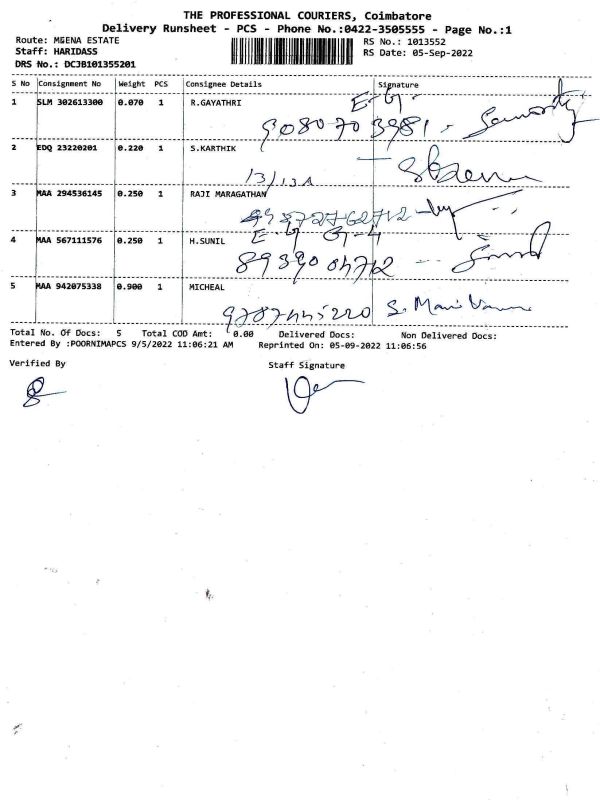 THE PROFESSIONAL COURIERS, Coimbatore
Delivery Runsheet - PCS - Phone No.:0422-3505555 - Page No.:1
Route: MEENA ESTATE
RS No.: 1013552
Staff: HARIDASS
RS Date: 05-Sep-2022
DRS No.: DCJB101355201
S No Consignment No Weight PCS Consignee Details Signature
1 SLM 302613300 0.070 1 R.GAYATHRI
9080703981
2 EDQ 23220201 0.220 1 S.KARTHIK
13/13A
3 MAA 294536145 0.250 1 RAJI MARAGATHAN
4 MAA 567111576 0.250 1 H.SUNIL
8939004712
5 MAA 942075338 0.900 1 MICHEAL
9787445220
Total No. Of Docs: 5 Total COD Amt: 0.00 Delivered Docs: Non Delivered Docs:
Entered By :POORNIMAPCS 9/5/2022 11:06:21 AM Reprinted On: 05-09-2022 11:06:56
Verified By Staff Signature